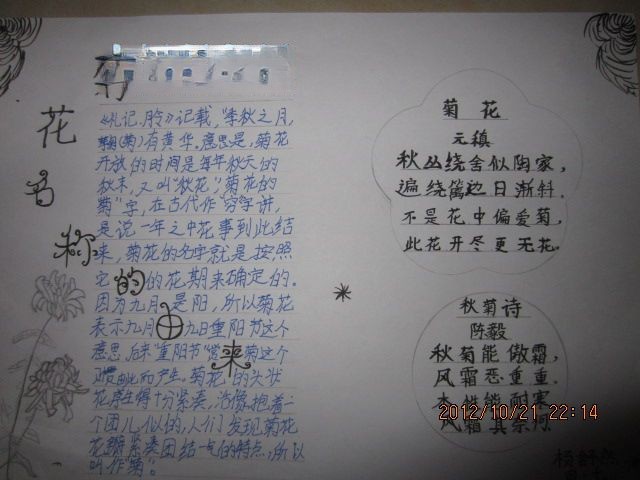 花
名
称
的
由
来
《礼记.月令》记载，"季秋之月，
鞠(菊)有黄华。意思是，菊花
开放的时间是每年秋天的
秋末，又叫"秋花"，菊花的
菊"字，在古代作"穷"字讲，
是说一年之中花事到此结
束，菊花的名字就是按照
它的花期来确定的。
因为九月是阳，所以菊花
表示九月九日重阳节这个
意思，后来"重阳节"赏菊这个
习惯由此而产生。菊花的头状
花序生得十分紧凑，活像抱着一
个团儿似的，人们发现菊花
花瓣紧凑团结一气的特点，所以
叫作"菊"。
菊花
元稹
秋丛绕舍似陶家，
遍绕篱边日渐斜.
不是花中偏爱菊，
此花开尽更无花.
秋菊诗
陈毅
秋菊能傲霜，
风霜恶重重.
本性能耐寒
风霜其奈何
2012/10/21 22:14